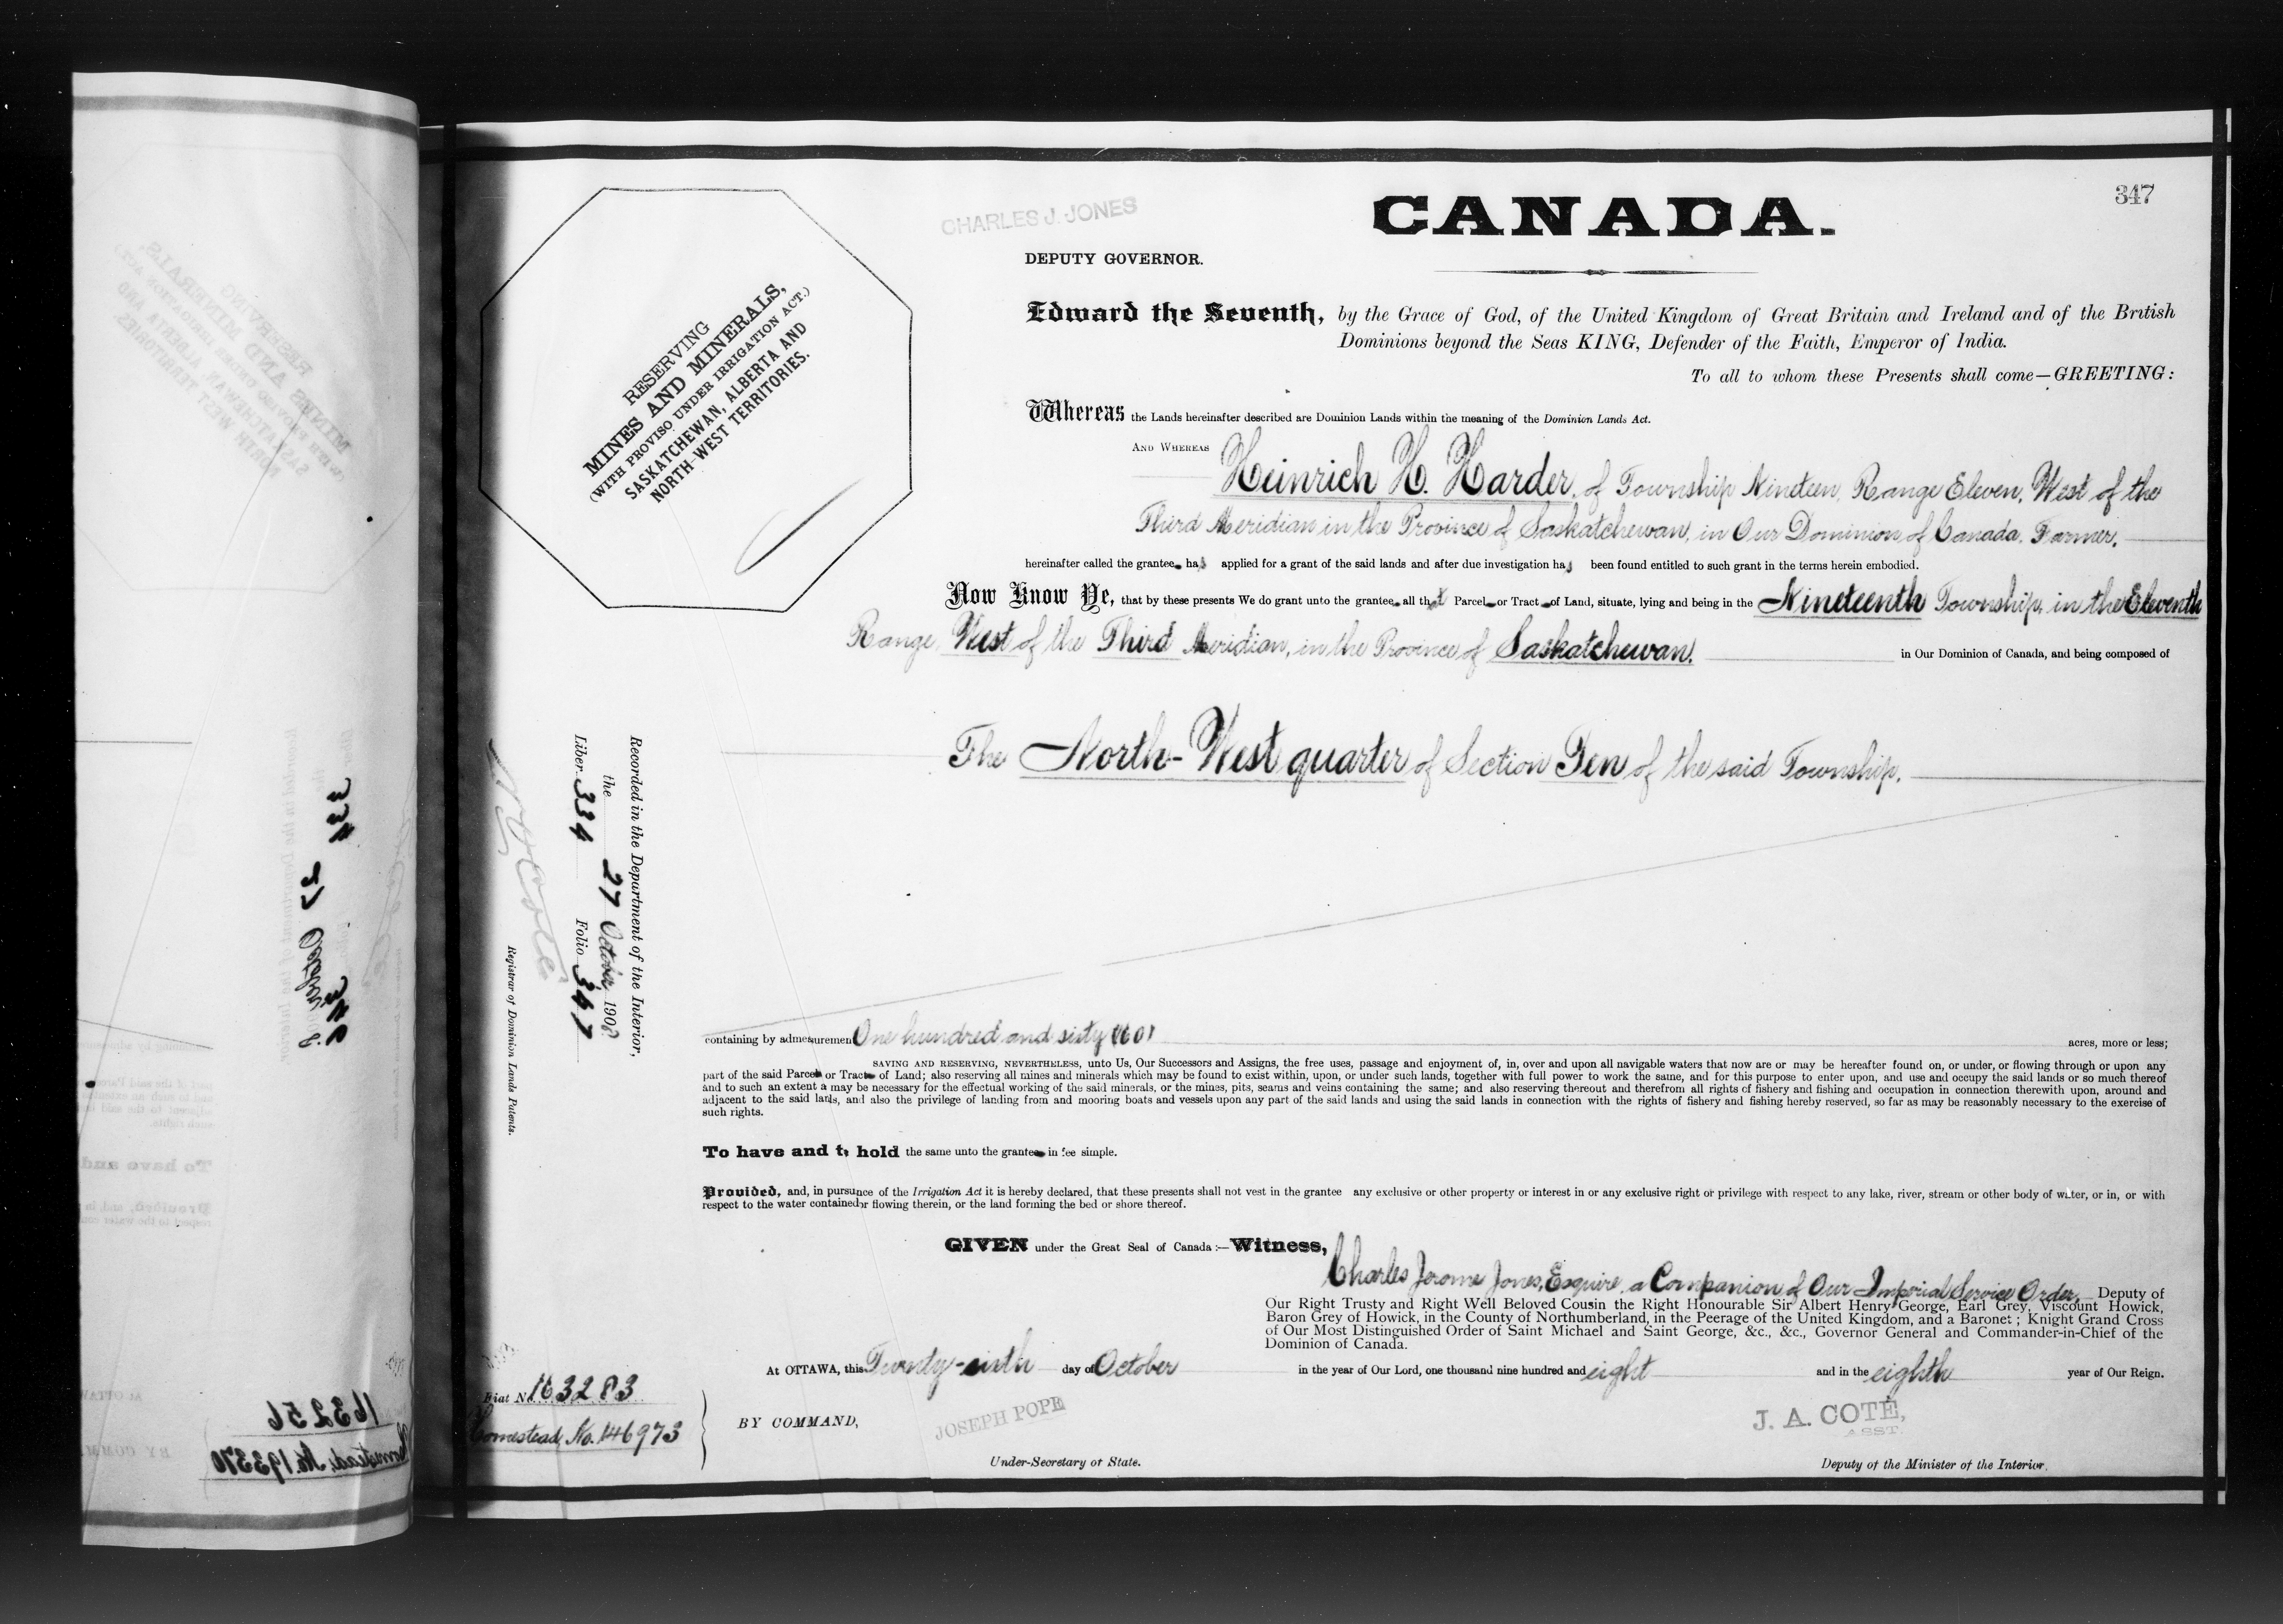 347
CHARLES J. JONES
CANADA.
DEPUTY GOVERNOR.
RESERVING
MINES AND MINERALS,
(WITH PROVISO UNDER IRRIGATION ACT.)
SASKATCHEWAN, ALBERTA AND
NORTH-WEST TERRITORIES.
Edward the Seventh, by the Grace of God, of the United Kingdom of Great Britain and Ireland and of the British
Dominions beyond the Seas KING, Defender of the Faith, Emperor of India.
To all to whom these Presents shall come—GREETING:
Whereas the Lands hereinafter described are Dominion Lands within the meaning of the Dominion Lands Act.
AND WHEREAS Heinrich H. Harder, of Township Nineteen, Range Eleven, West of the
Third Meridian in the Province of Saskatchewan, in Our Dominion of Canada, Farmer,
hereinafter called the grantee has applied for a grant of the said lands and after due investigation has been found entitled to such grant in the terms herein embodied.
Now Know Ye, that by these presents We do grant unto the grantee all that Parcel or Tract of Land, situate, lying and being in the Nineteenth Township, in the Eleventh
Range, West of the Third Meridian, in the Province of Saskatchewan, in Our Dominion of Canada, and being composed of
The North-West quarter of Section Ten of the said Township.
Recorded in the Department of the Interior,
the 27 October 1908
Liber 334 Folio 347
Registrar of Dominion Lands Patents.
containing by admeasuremen One hundred and sixty (160) acres, more or less;
SAVING AND RESERVING, NEVERTHELESS, unto Us, Our Successors and Assigns, the free uses, passage and enjoyment of, in, over and upon all navigable waters that now are or may be hereafter found on, or under, or flowing through or upon any
part of the said Parcel or Tract of Land; also reserving all mines and minerals which may be found to exist within, upon, or under such lands, together with full power to work the same, and for this purpose to enter upon, and use and occupy the said lands or so much thereof
and to such an extent a may be necessary for the effectual working of the said minerals, or the mines, pits, seams and veins containing the same; and also reserving thereout and therefrom all rights of fishery and fishing and occupation in connection therewith upon, around and
adjacent to the said lands, and also the privilege of landing from and mooring boats and vessels upon any part of the said lands and using the said lands in connection with the rights of fishery and fishing hereby reserved, so far as may be reasonably necessary to the exercise of
such rights.
To have and to hold the same unto the grantee in fee simple.
Provided, and, in pursuance of the Irrigation Act it is hereby declared, that these presents shall not vest in the grantee any exclusive or other property or interest in or any exclusive right or privilege with respect to any lake, river, stream or other body of water, or in, or with
respect to the water contained or flowing therein, or the land forming the bed or shore thereof.
GIVEN under the Great Seal of Canada:—Witness,
Charles Jerome Jones, Esquire, a Companion of Our Imperial Service Order, Deputy of
Our Right Trusty and Right Well Beloved Cousin the Right Honourable Sir Albert Henry George, Earl Grey, Viscount Howick,
Baron Grey of Howick, in the County of Northumberland, in the Peerage of the United Kingdom, and a Baronet; Knight Grand Cross
of Our Most Distinguished Order of Saint Michael and Saint George, &c., &c., Governor General and Commander-in-Chief of the
Dominion of Canada.
At OTTAWA, this Twenty-sixth day of October in the year of Our Lord, one thousand nine hundred and eight and in the eighth year of Our Reign.
Fiat No. 163283
Homestead, No. 146973
BY COMMAND,
JOSEPH POPE
Under-Secretary of State.
J. A. COTÉ,
ASST.
Deputy of the Minister of the Interior.